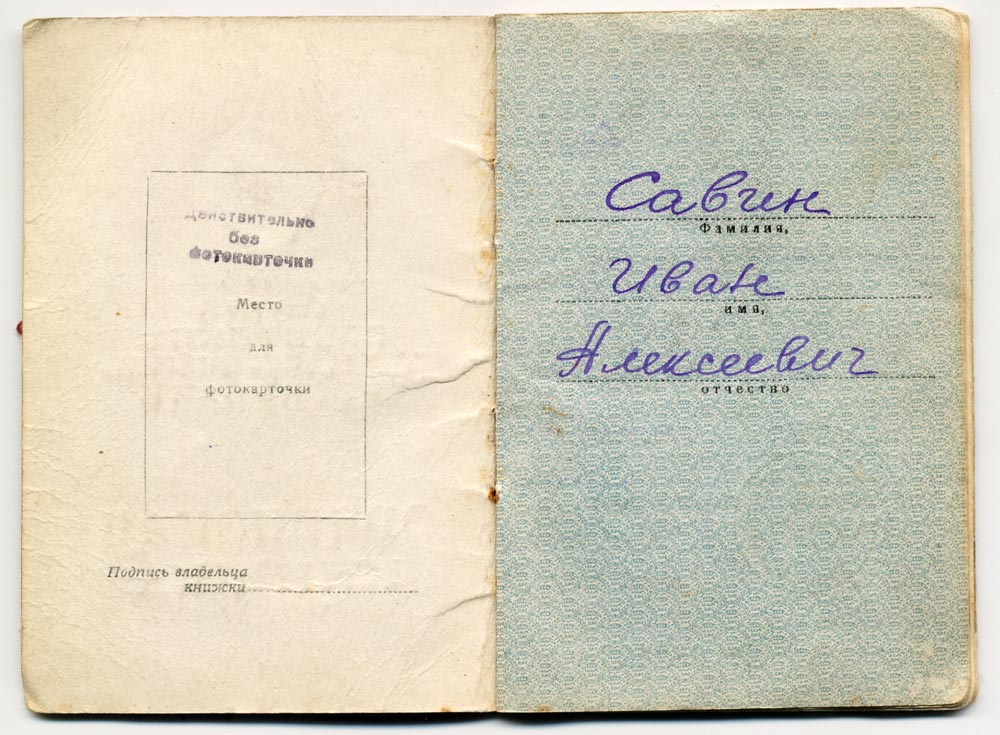 Действительно
без
фотокарточки
Место
для
фотокарточки
Подпись владельца
книжки
Савин
Фамилия,
Иван
имя,
Алексеевич
отчество